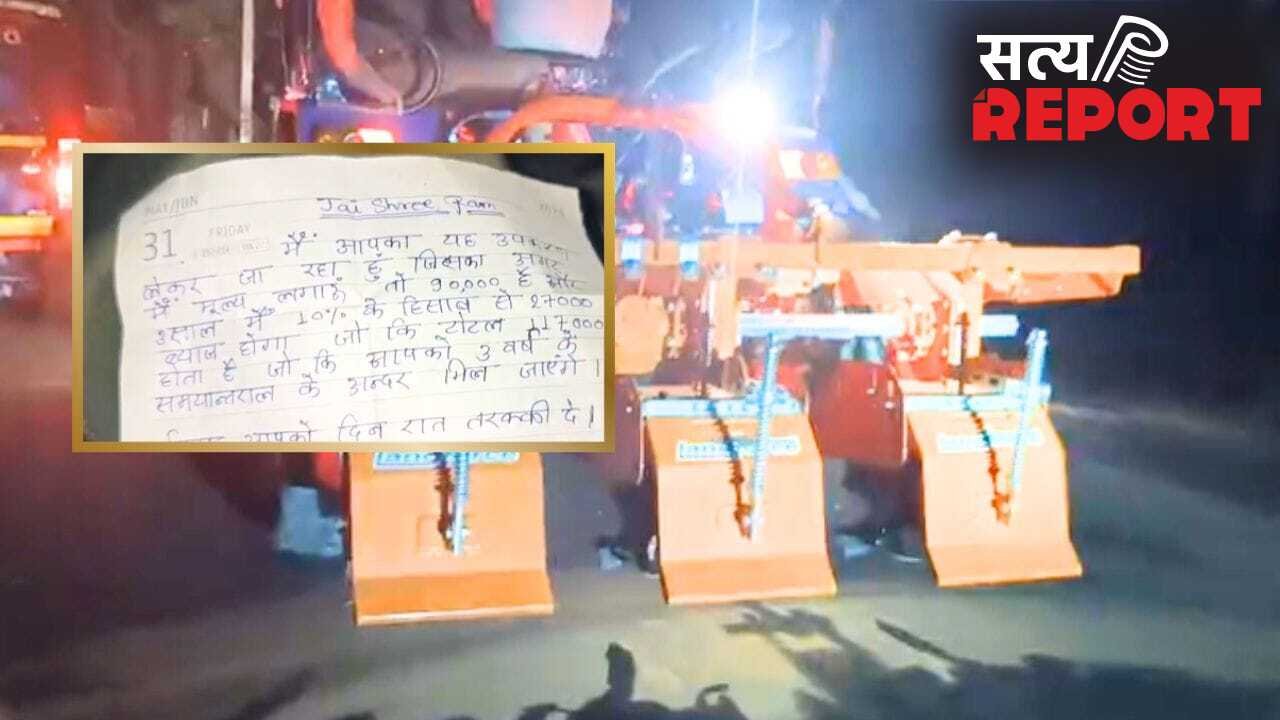 सत्य
REPORT
MAY/JUN
Jai Shree Ram
31 FRIDAY
मैं आपका यह
लेकर जा रहा हूँ जिसका अगर
मैं मूल्य लगाऊं तो 90,000 है और
3 साल में 10% के हिसाब से 27000
ब्याज होगा जो कि टोटल 117000
होता है जो कि आपको 3 वर्ष के
समयान्तराल के अन्दर मिल जाएंगे।
आपको दिन रात तरक्की दे।